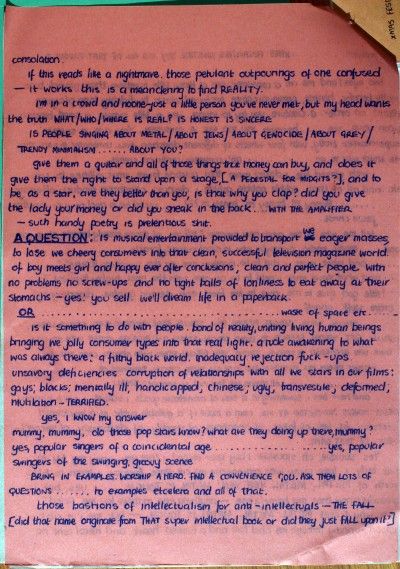 consolation.
if this reads like a nightmare. those petulant outpourings of one confused
— it works this is a meandering to find REALITY.
i'm in a crowd and noone - just a little person you've never met, but my head wants
the truth WHAT/WHO/WHERE IS REAL? IS HONEST IS SINCERE
IS PEOPLE SINGING ABOUT METAL/ABOUT JEWS/ABOUT GENOCIDE/ABOUT GREY/
TRENDY MINIMALISM ...... ABOUT YOU?
give them a guitar and all of those things that money can buy, and does it
give them the right to stand upon a stage, [A PEDESTAL FOR MIDGITS?], and to
be, as a star, are they better than you, is that why you clap? did you give
the lady your money or did you sneak in the back... WITH THE AMPLIFIER
— such handy poetry is pretentious shit.
A QUESTION: IS musical entertainment provided to transport WE eager masses
to lose we cheery consumers into that clean, successful television magazine world.
of boy meets girl and happy ever after conclusions, clean and perfect people. with
no problems no screw-ups and no tight balls of lonliness to eat away at their
stomachs - yes! you sell. we'll dream life in a paperback.
OR ........................................ waste of space etc.
is it something to do with people. bond of reality, uniting living human beings
bringing we jolly consumer types into that real light. a rude awakening to what
was always there: a filthy black world. inadequaty rejection fuck-ups
unsavory deficiencies corruption of relationships with all we stars in our films:
gays; blacks; mentally ill, handicapped, chinese, ugly, transvestile, deformed,
mutilation - TERRIFIED.
yes, i know my answer
mummy, mummy, do those pop stars know? what are they doing up there, mummy?
yes popular singers of a coincidental age .................... yes, popular
swingers of the swinging, groovy scene
BRING IN EXAMPLES. WORSHIP A HERO. FIND A CONVENIENCE GOD. ASK THEM LOTS OF
QUESTIONS ....... to examples etcetera and all of that.
those bastions of intellectualism for anti-intellectuals — THE FALL
[did that name originate from THAT super intellectual book or did they just FALL upon it?]